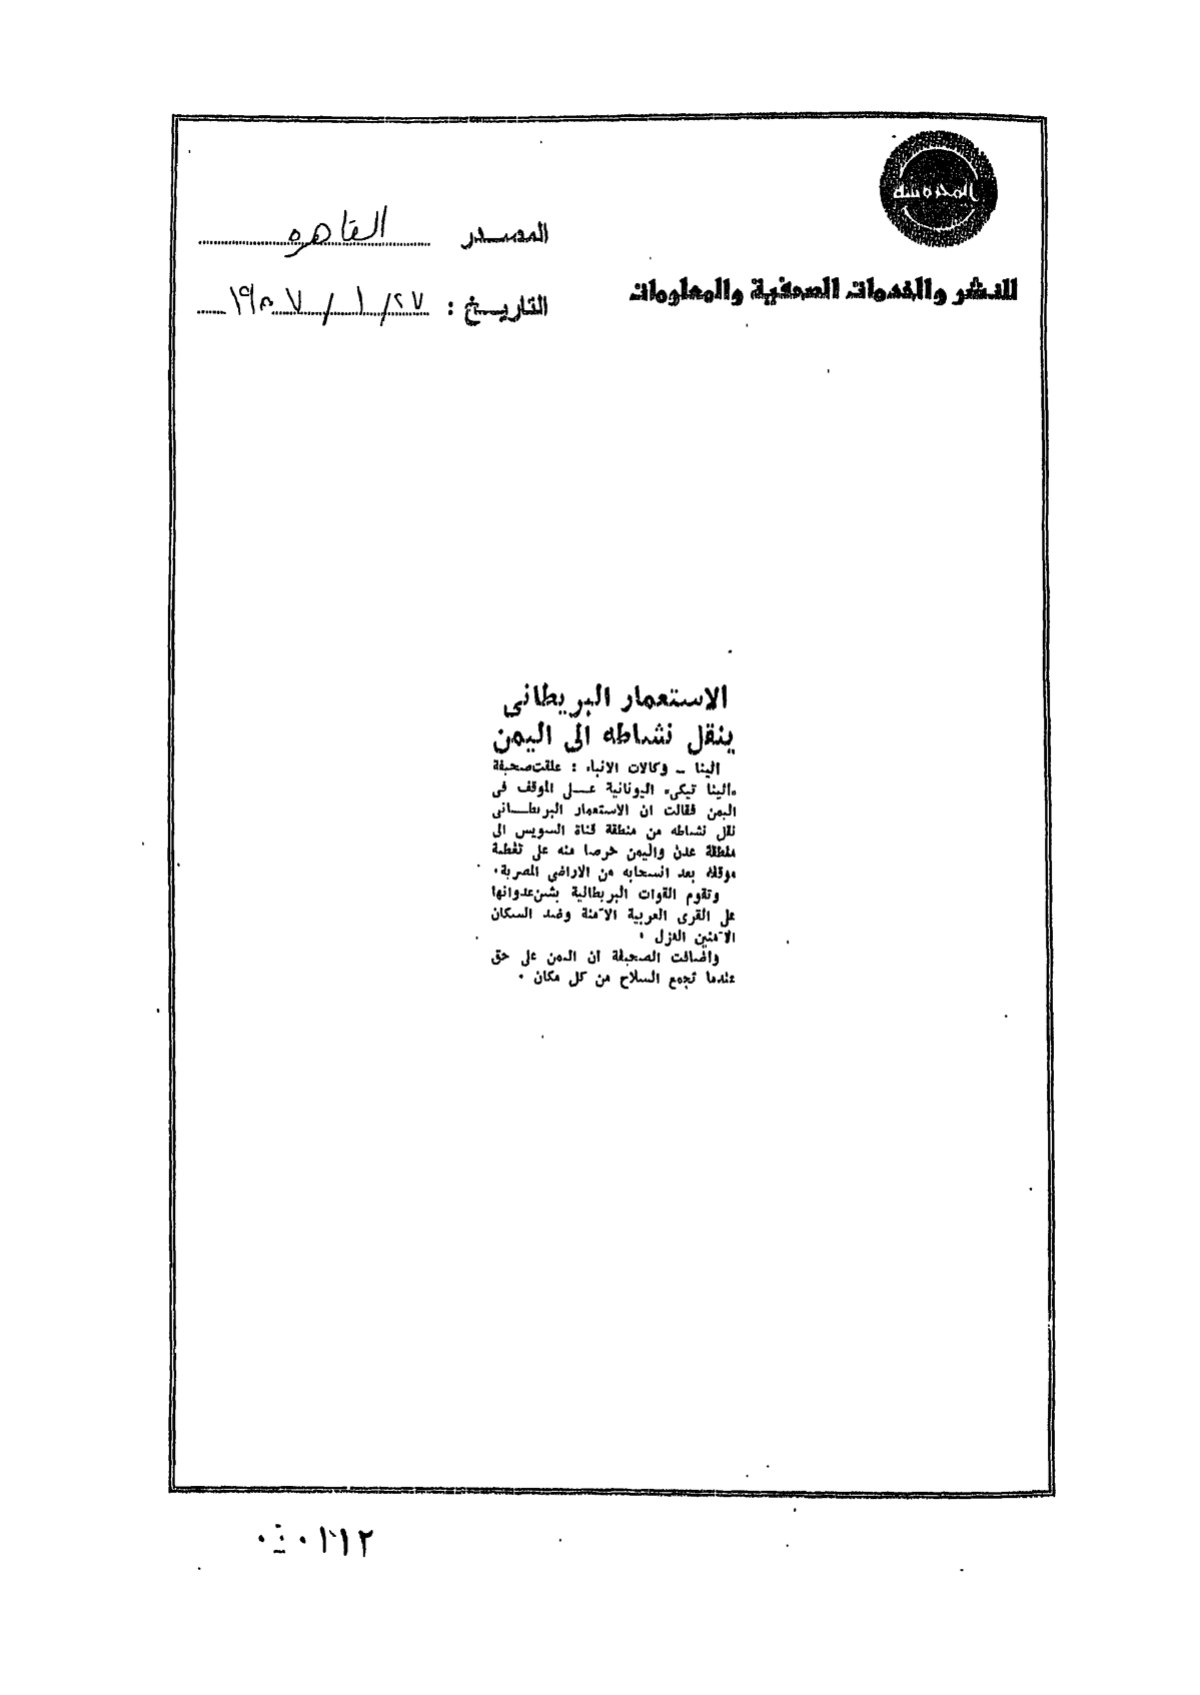 المحروسة
للنشر والخدمات الصحفية والمعلومات
المصدر القاهره
التاريخ : ٢٧ / ١ / ١٩٥٧
الاستعمار البريطانى
ينقل نشاطه الى اليمن
الينا - وكالات الانباء : علقت صحيفة
«الينا تيكى» اليونانية عـلى الموقف فى
اليمن فقالت ان الاستعمار البريطـانى
نقل نشاطه من منطقة قناة السويس الى
منطقة عدن واليمن حرصا منه على تغطية
موقفه بعد انسحابه من الاراضى المصرية .
وتقوم القوات البريطانية بشن عدوانها
على القرى العربية الآمنة وضد السكان
الآمنين العزل .
واضافت الصحيفة ان اليمن على حق
عندما تجمع السلاح من كل مكان .